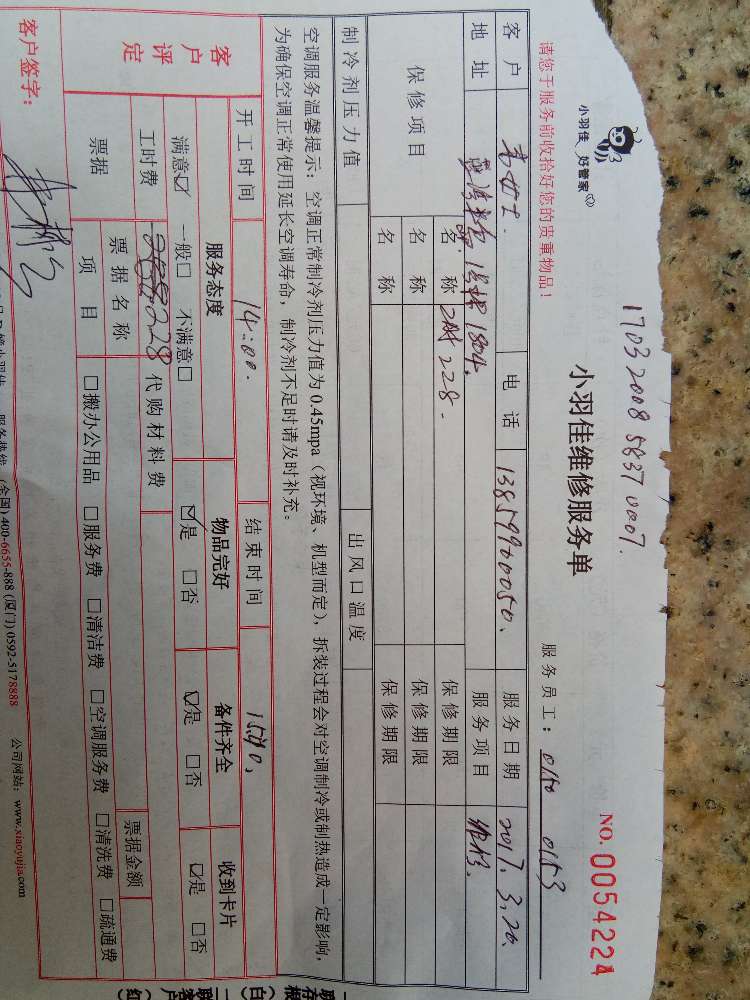 17032008 5837 0007.
小羽佳 好管家
小羽佳维修服务单
NO. 0054224
请您于服务前收拾好您的贵重物品！
服务员工： 0150 0153
客户 电话 13859900050. 服务日期 2017.3.20.
地址 1804. 服务项目 维修.
保修项目 名称 228. 保修期限
名称 保修期限
名称 保修期限
制冷剂压力值 出风口温度
空调服务温馨提示：空调正常制冷剂压力值为 0.45mpa（视环境、机型而定），拆装过程会对空调制冷或制热造成一定影响，
为确保空调正常使用延长空调寿命，制冷剂不足时请及时补充。
开工时间 14:00. 结束时间 15:40.
客户评定 服务态度 物品完好 备件齐全 收到卡片
满意☑ 一般□ 不满意□ ☑是 □否 ☑是 □否 ☑是 □否
工时费 228 代购材料费
票据 票据名称 票据金额
项目 □搬办公用品 □服务费 □清洁费 □空调服务费 □清洗费 □疏通费
客户签字：
(全国) 400-6655-888 (厦门) 0592-5178888 公司网站：www.xiaoyujia.com